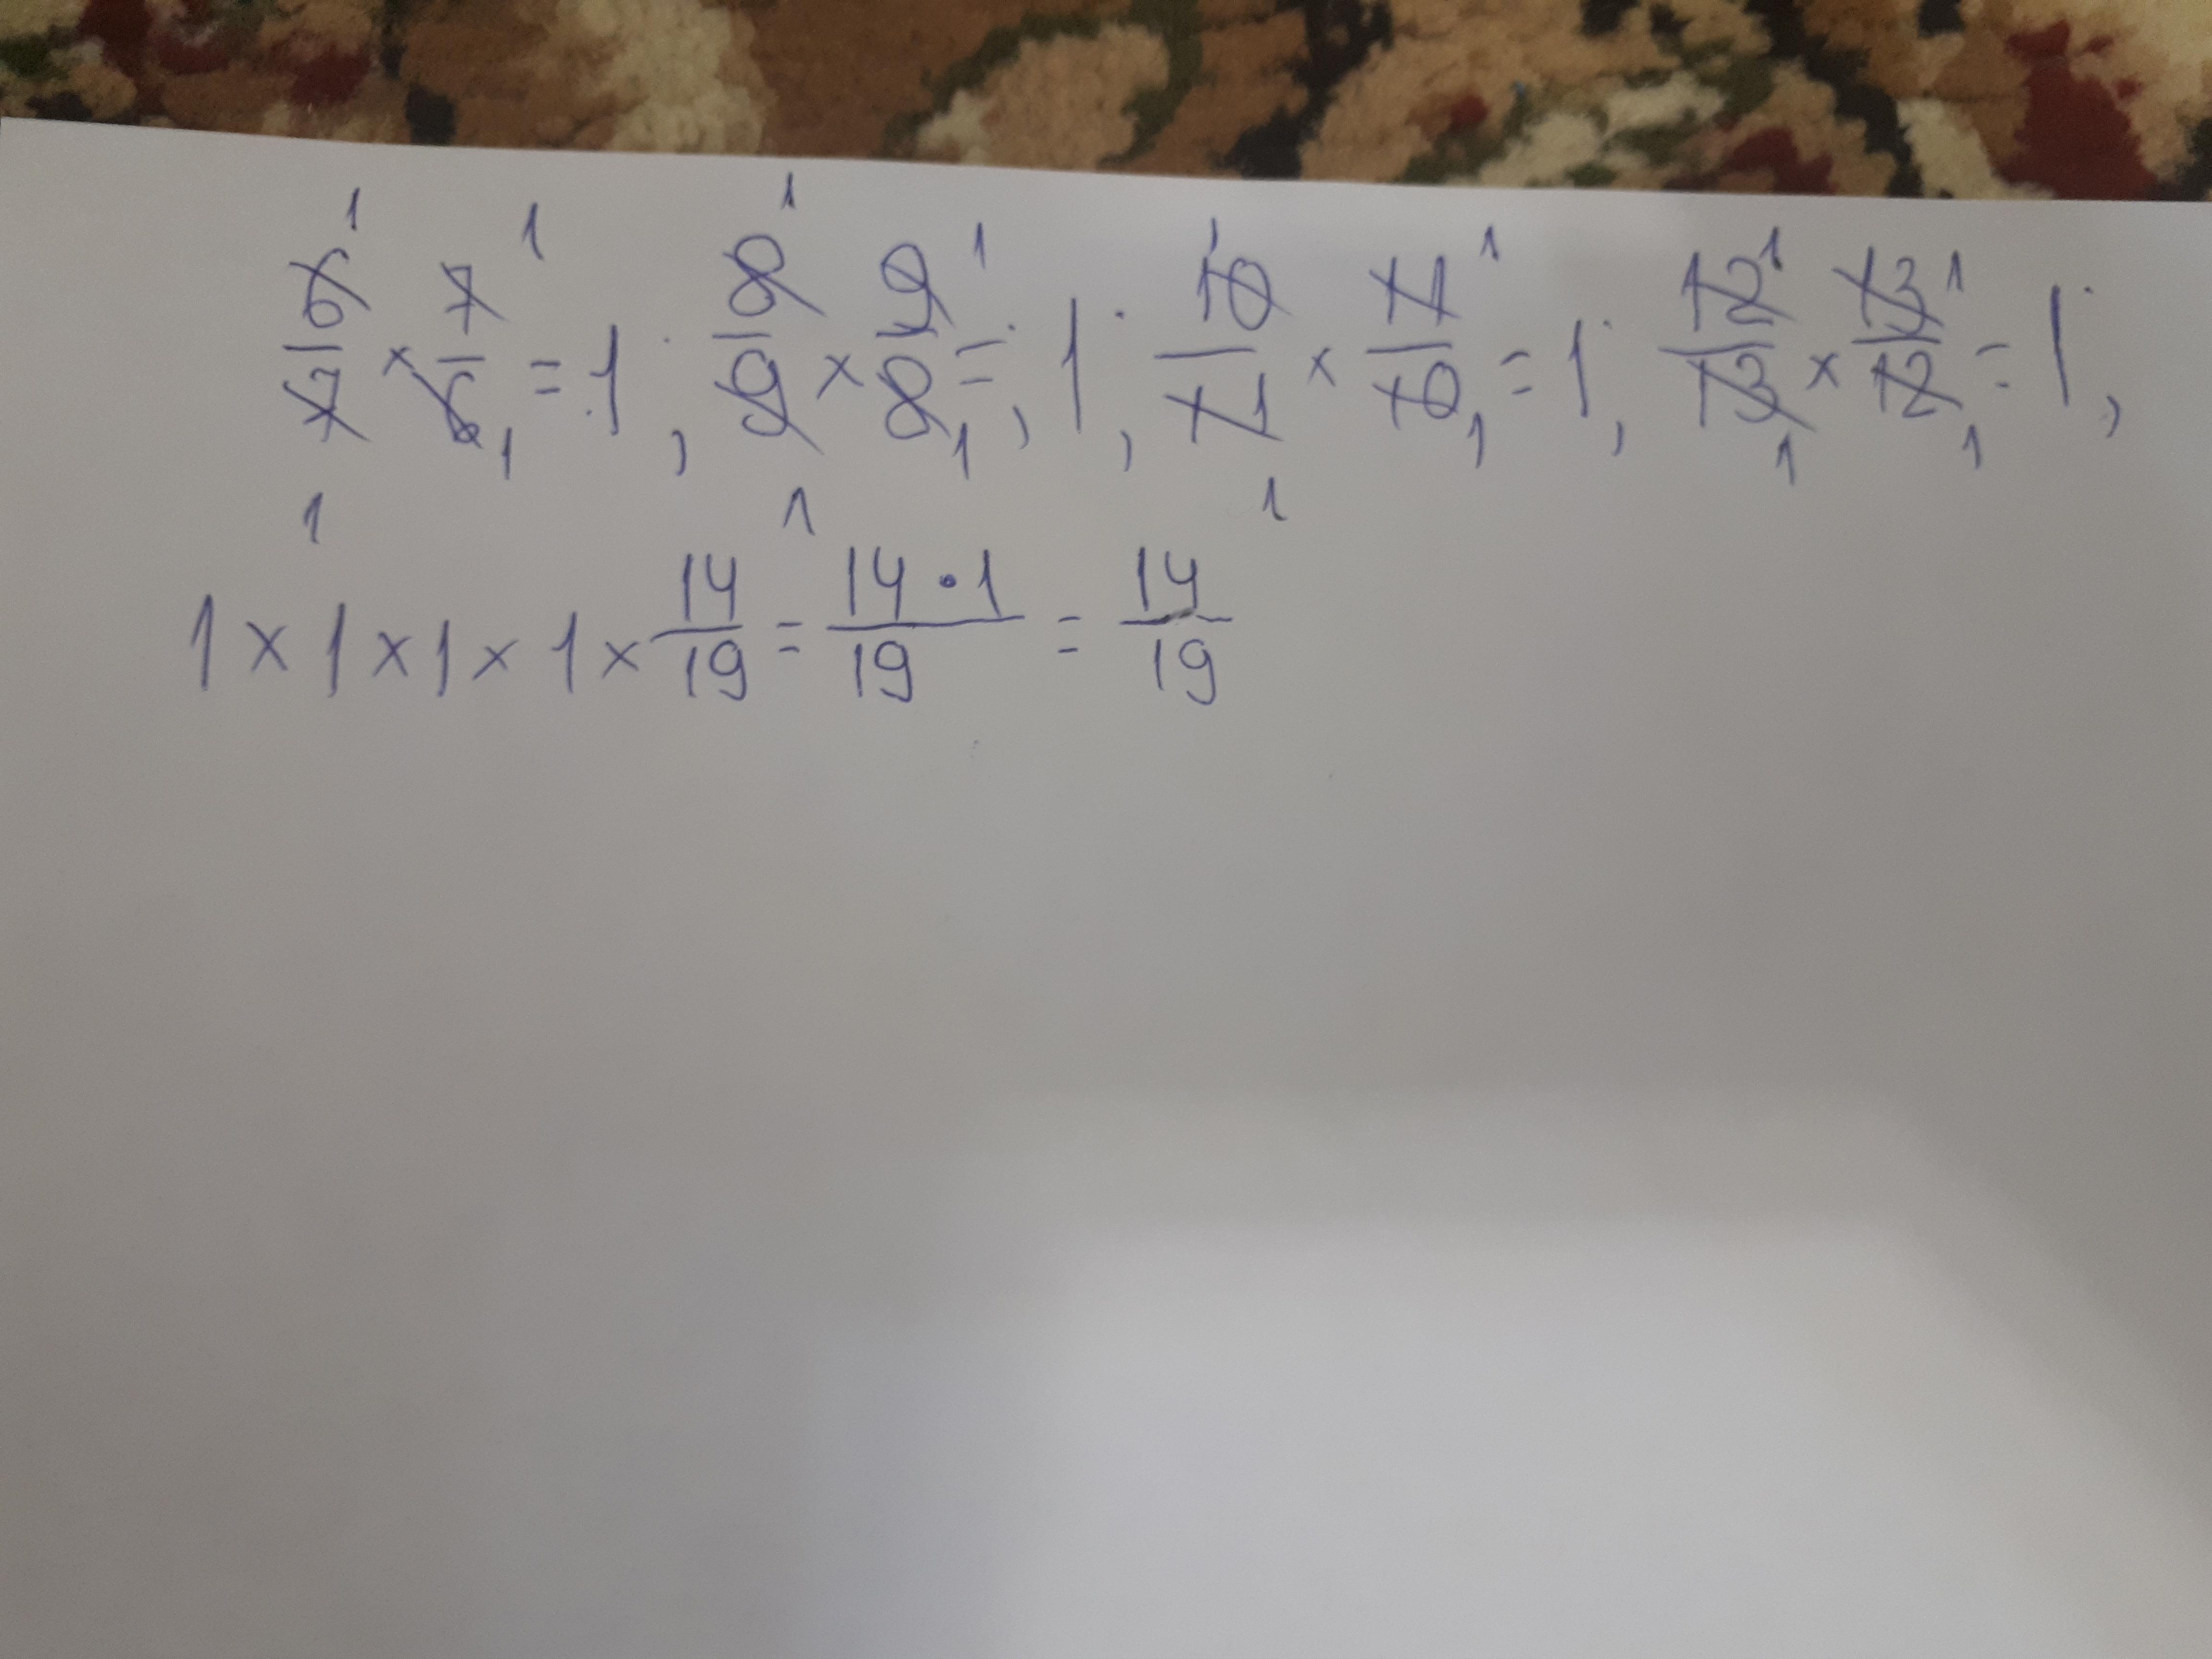 6/7 × 7/6 = 1 ; 8/9 × 9/8 = ; 1 ; 10/11 × 11/10 = 1 ; 12/13 × 13/12 = 1 ;
1 × 1 × 1 × 1 × 14/19 = 14 · 1/19 = 14/19